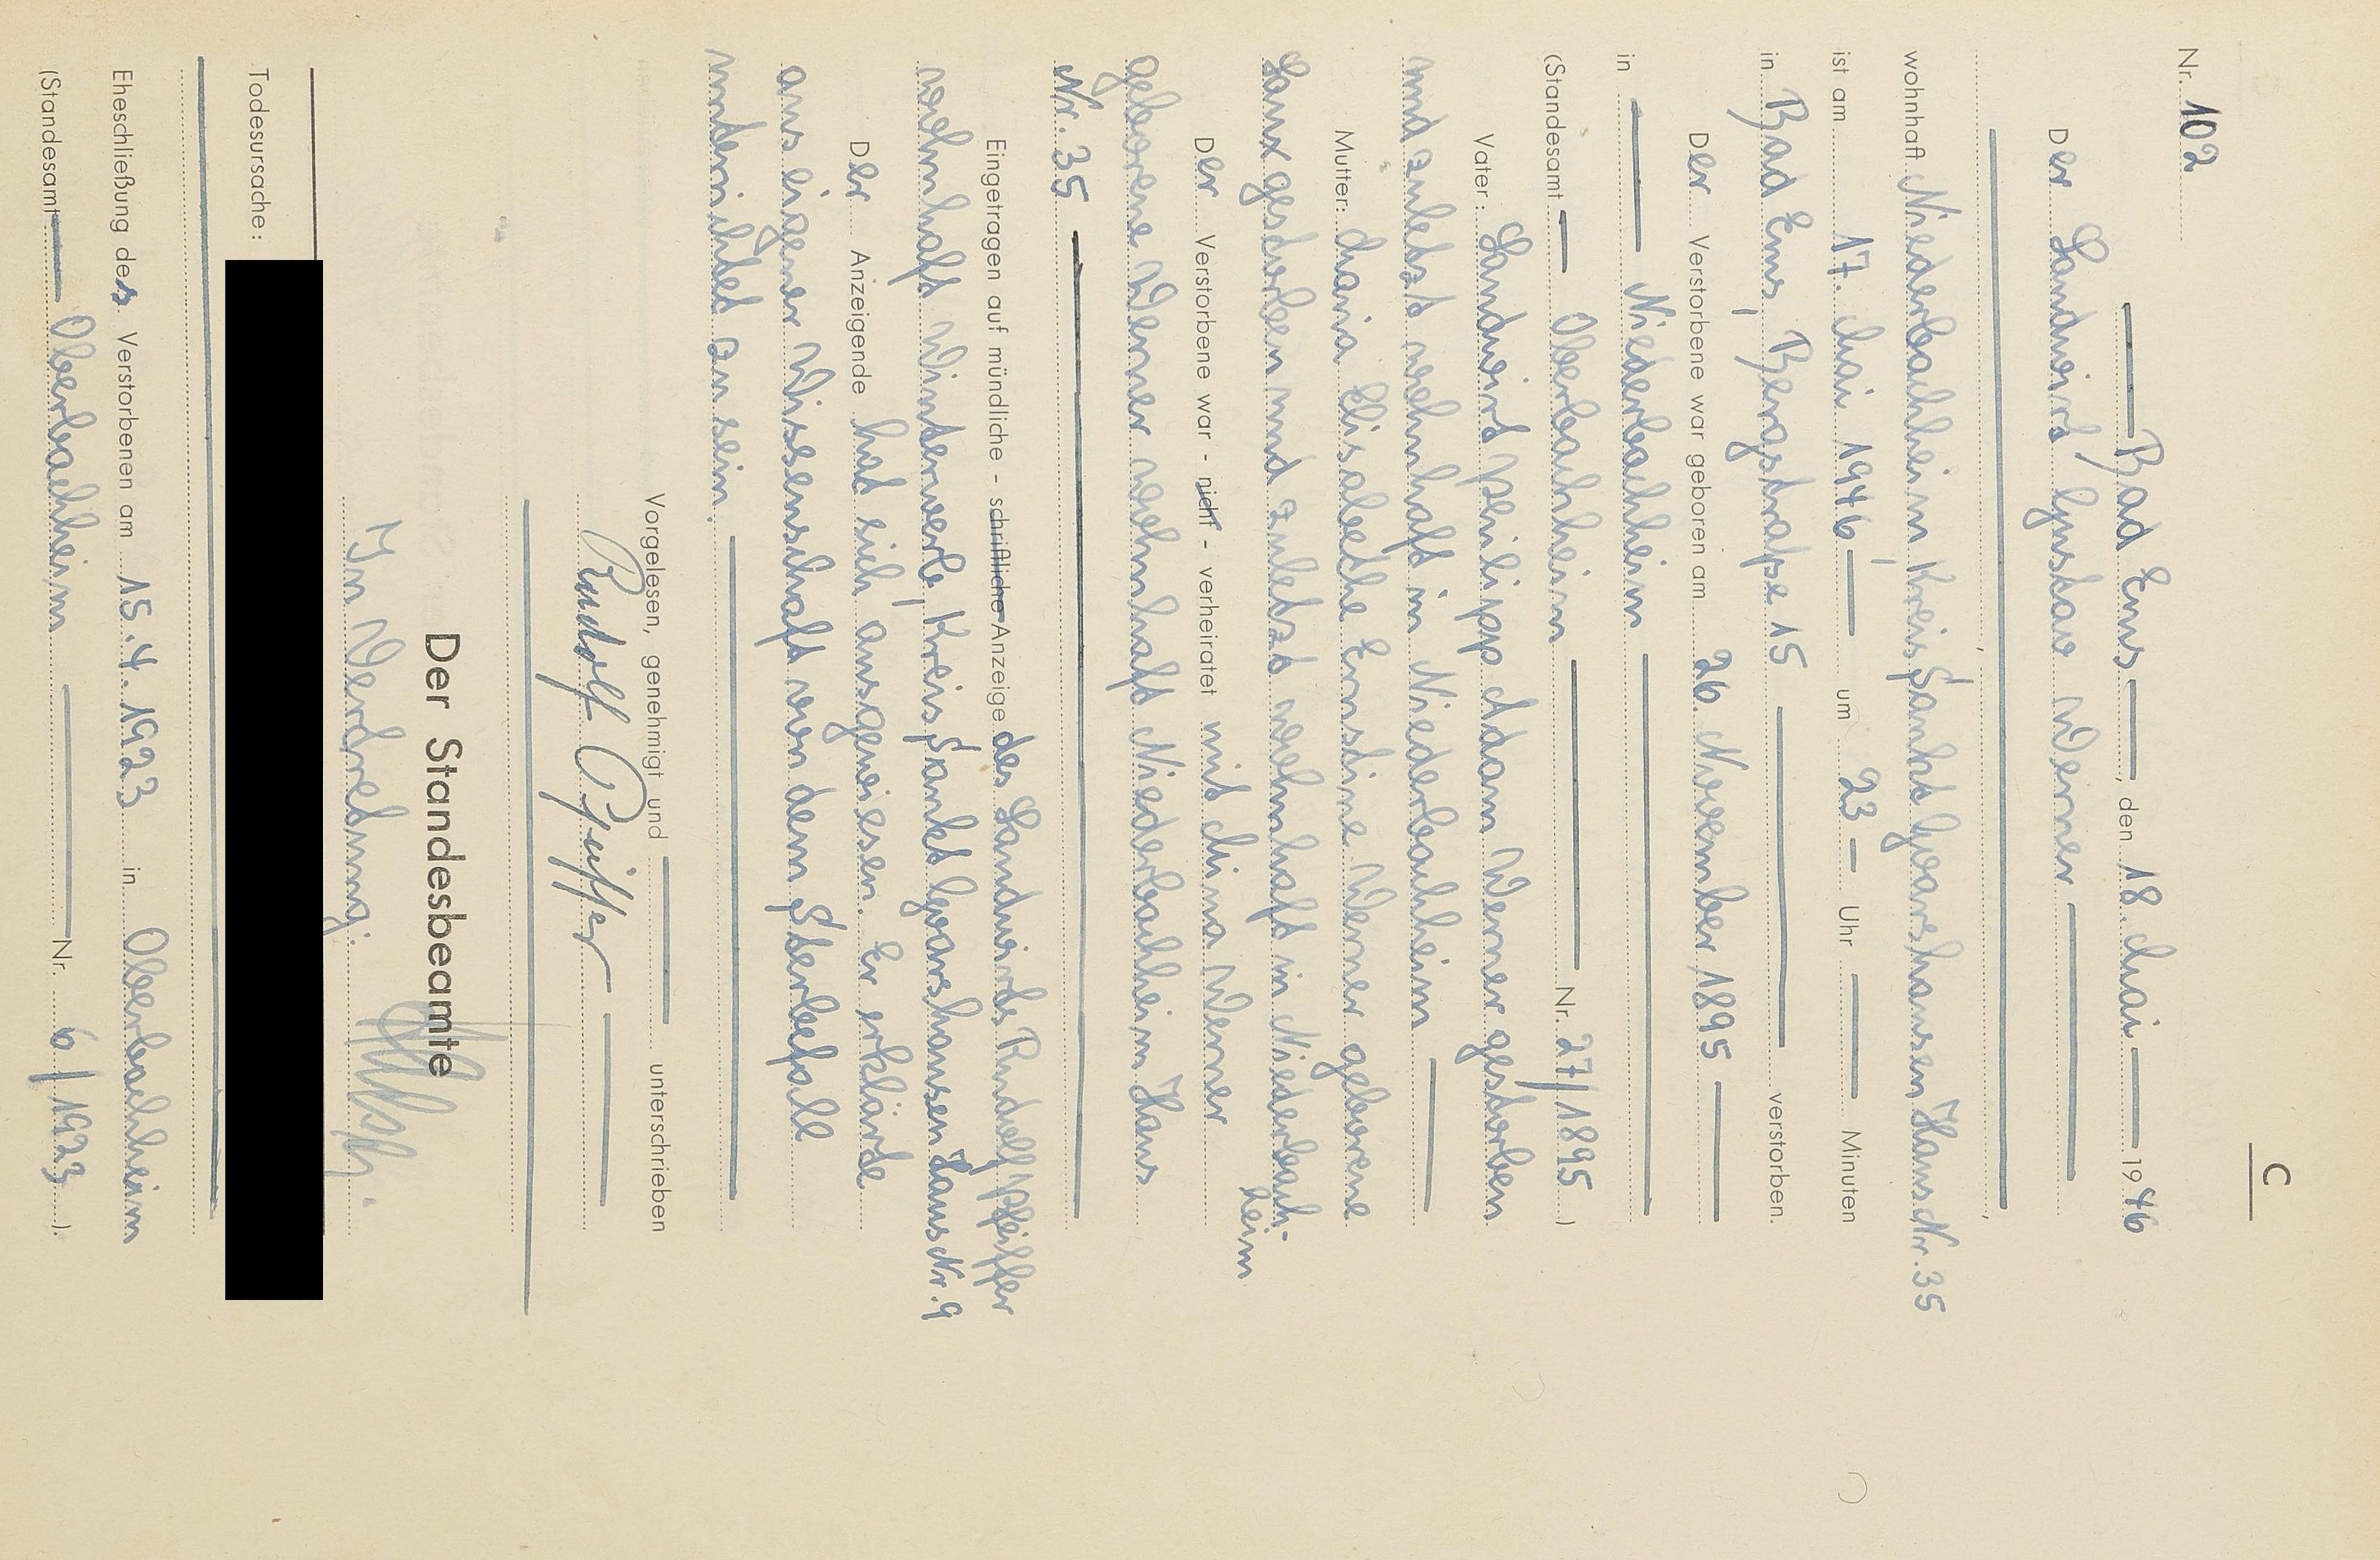 C
Nr. 102
Bad Ems, den 18. Mai 1946
Der Landwirt Gustav Werner
wohnhaft Niederbachheim Kreis Sankt Goarshausen Haus Nr. 35
ist am 17. Mai 1946 um 23 Uhr Minuten
in Bad Ems, Bergstraße 15 verstorben.
Der Verstorbene war geboren am 26. November 1895
in Niederbachheim
(Standesamt Oberbachheim Nr. 27/1895)
Vater: Landwirt Philipp Adam Werner gestorben
und zuletzt wohnhaft in Niederbachheim
Mutter: Maria Elisabethe Ernstine Werner geborene
Laux gestorben und zuletzt wohnhaft in Niederbach-
heim
Der Verstorbene war - nicht - verheiratet mit Mina Werner
geborene Werner wohnhaft Niederbachheim Haus
Nr. 35
Eingetragen auf mündliche - schriftliche Anzeige des Landwirts Rudolf Pfeiffer
wohnhaft Winterwerb, Kreis Sankt Goarshausen Haus Nr. 9
Der Anzeigende hat sich ausgewiesen. Er erklärde
aus eigener Wissenschaft von dem Sterbefall
underrichtet zu sein.
Vorgelesen, genehmigt und unterschrieben
Rudolf Pfeiffer
Der Standesbeamte
In Verdretung:
Todesursache:
Eheschließung des Verstorbenen am 15.4.1923 in Oberbachheim
(Standesamt Oberbachheim Nr. 6/1923).